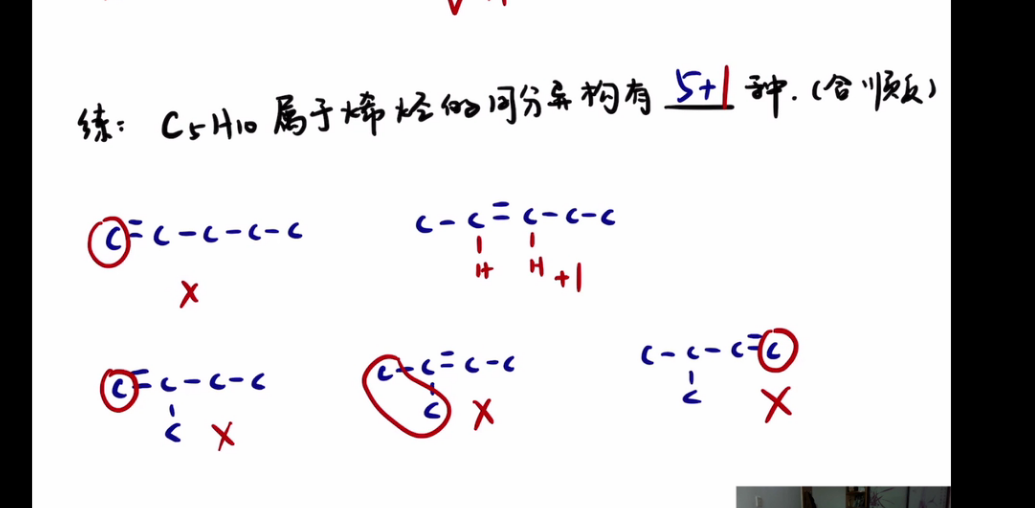 练: C₅H₁₀ 属于烯烃的同分异构有 5+1 种.(含顺反)
C=C-C-C-C
C-C=C-C-C
H H +1
X
C=C-C-C
C X
C-C=C-C
C X
C-C-C=C
C X